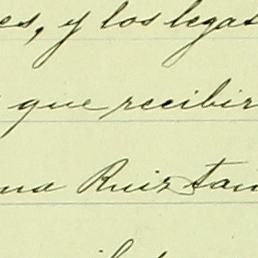 es, y los legas
que recibir
na Ruiz tam